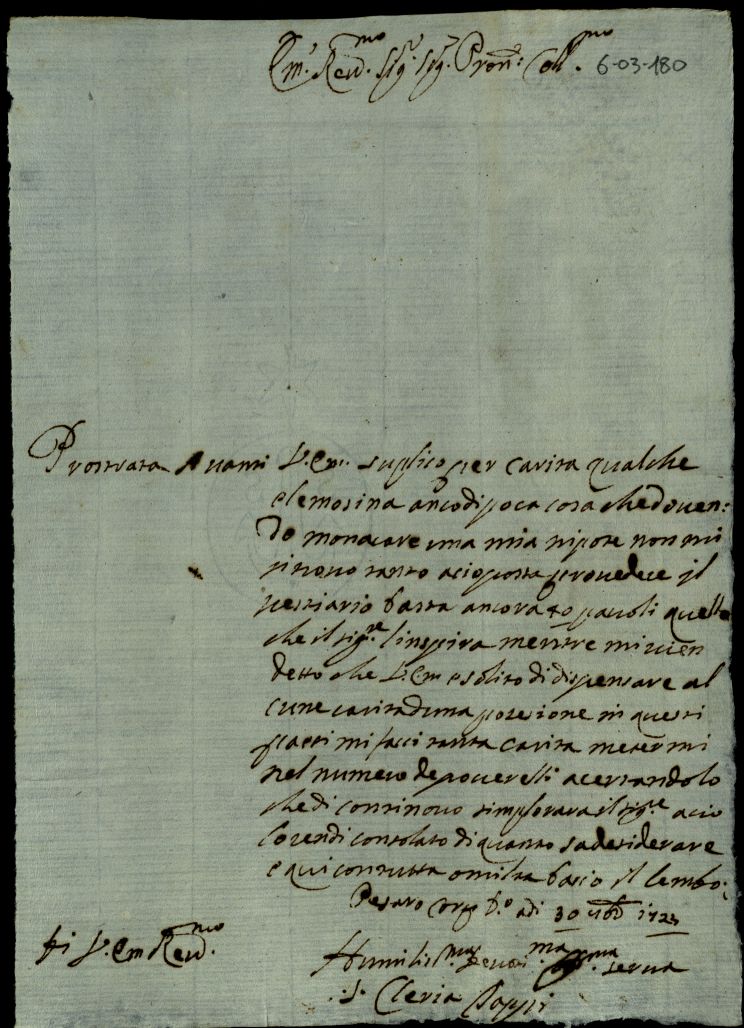 Em.º Reu.mo Sig.r Sig.r Pron.e Coll.mo 6-03-180
Prostrata Auanti V. Em. suplico per carita qualche
elemosina anco di poca cosa che douen:
do monacare una mia nipote non mi
ritrouo tanto acio posta prouedere il
vestiario basta ancora to pauoli quello
che il sig.re l'inspira mentre mi uien
detto che V. Em e solito di dispensare al
cune carita d una posesione in questi
parti mi faci tanta carita metermi
nel numero de pouerelli acertandolo
che di continouo s implorara il sig.re acio
lo rendi consolato di quanto sa desiderare
e qui con tutta omilta bacio il lembo:
Pesaro adi 30 1723
Di V. Em Reu.mo
Humilis.ma Deuoti.ma serua
Cleria